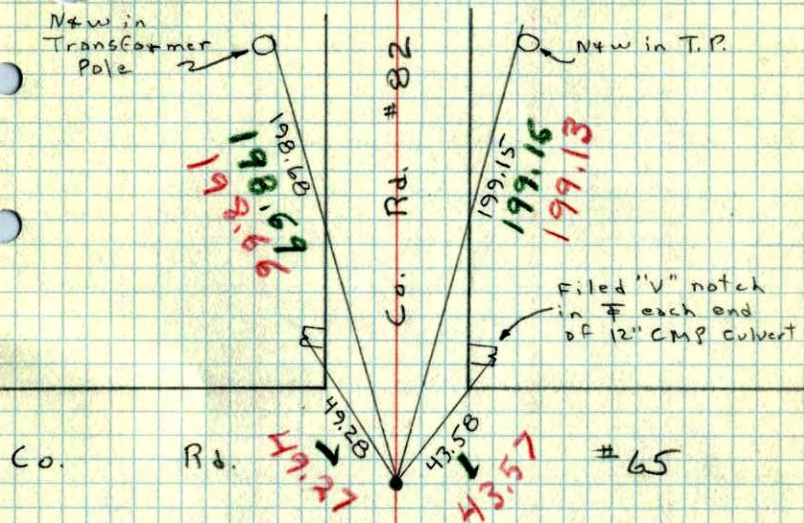 N&W in
Transformer
Pole
N&W in T.P.
Co. Rd. #82
198.68
198.69
198.66
199.15
199.15
199.13
Filed "V" notch
in each end
of 12" CMP culvert
49.28
49.27
43.58
43.57
Co. Rd. #65